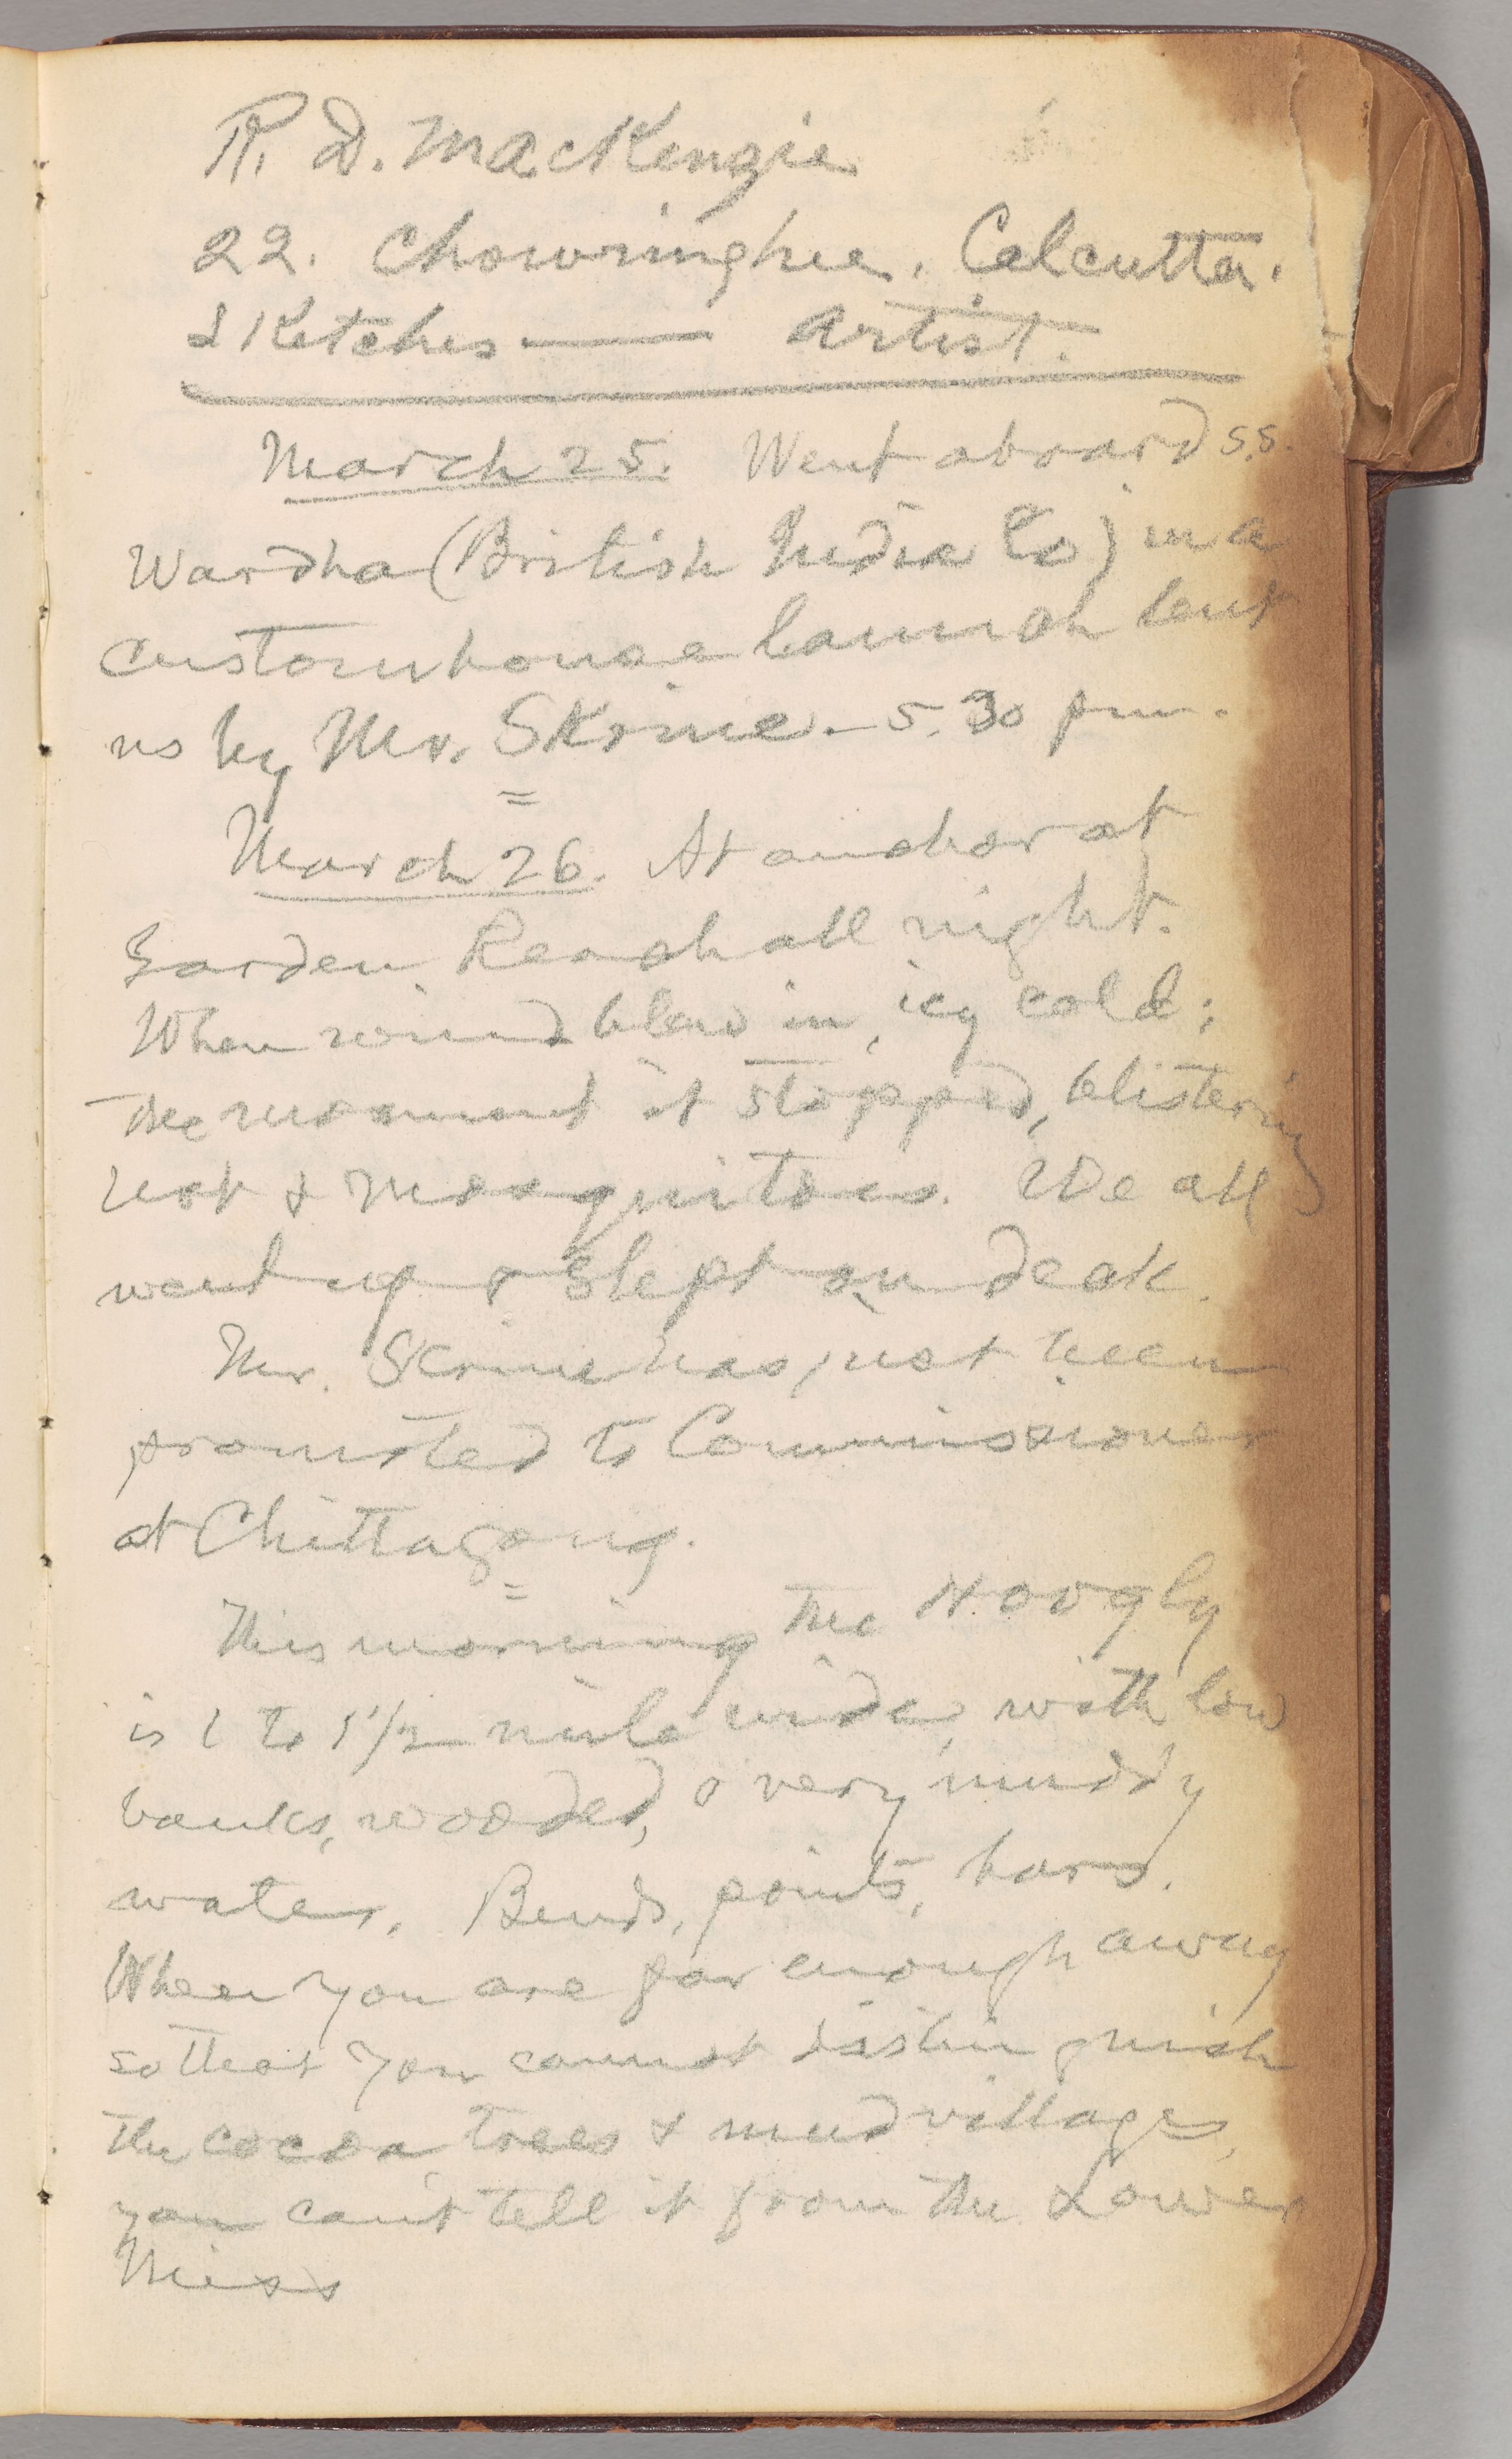 R. D. MacKenzie
22. Chowringhee. Calcutta.
Sketches —— Artist.
March 25. Went aboard s.s.
Wardha (British India Co) in a
customhouse launch lent
us by Mr. Skrine. — 5.30 pm.
=
March 26. At anchor at
Garden Reach all night.
When wind blew in, icy cold;
the moment it stopped, blistering
hot & mosquitoes. We all
went up & slept on deck.
Mr. Skrine has just been
promoted to Commissioner
at Chittagong.
=
This morning the Hoogly
is 1 to 1 1/2 mile wide, with low
banks, wooded, & very muddy
water. Bends, points, bars.
When you are far enough away
so that you cannot distinguish
the cocoa trees & mud villages,
you can't tell it from the Lower
Miss